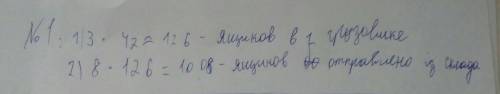 №1: 1) 3 · 42 = 126 - ящиков в 1 грузовике
2) 8 · 126 = 1008 - ящиков отправлено из склада